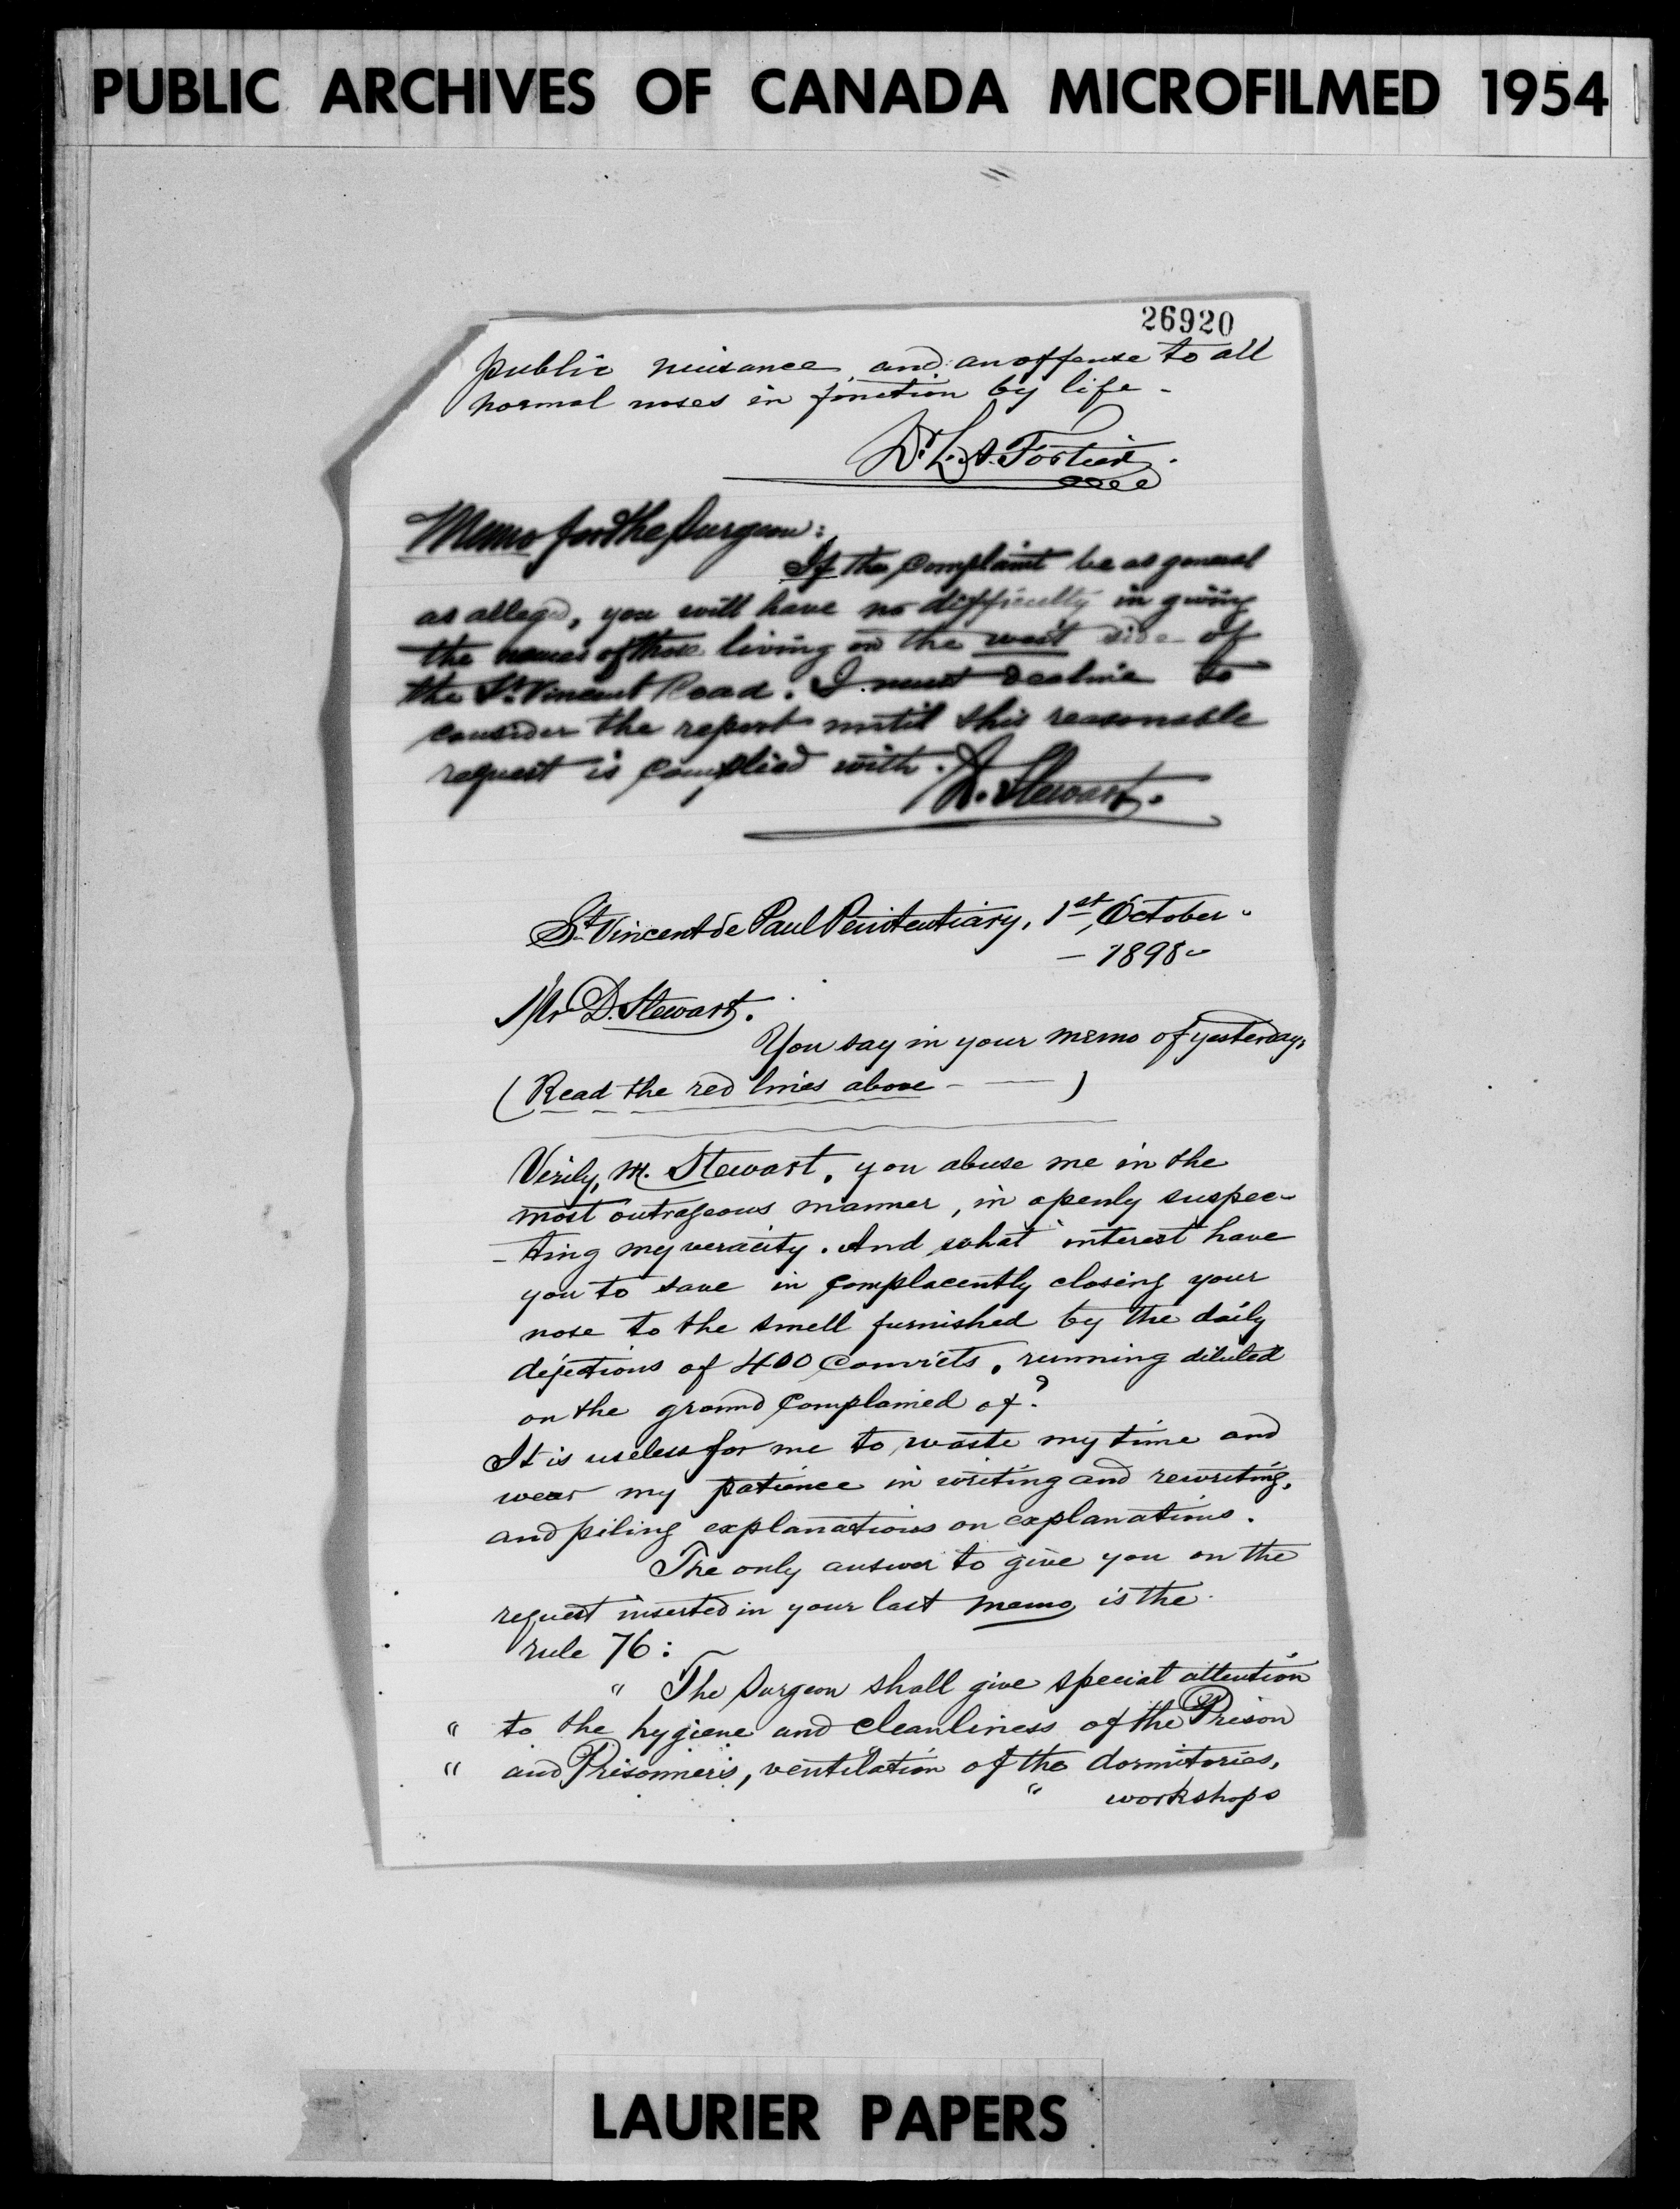 PUBLIC ARCHIVES OF CANADA MICROFILMED 1954
26920
public nuisance, and an offense to all
normal noses in fonction by life -
Dr. L. A. Fortier.
Memo for the Surgeon:
If the complaint be as general
as alleged, you will have no difficulty in giving
the names of those living on the west side of
the St. Vincent Road. I must decline to
consider the report until this reasonable
request is complied with.
D. Stewart.
St. Vincent de Paul Penitentiary, 1st, October -
- 1898 -
Mr D. Stewart.
You say in your memo of yesterday,
( Read the red lines above - — )
Verily, M. Stewart, you abuse me in the
most outrageous manner, in openly suspec-
- ting my veracity. And what interest have
you to save in complacently closing your
nose to the smell furnished by the daily
dejections of 400 convicts, running diluted
on the ground complained of?
It is useless for me to waste my time and
wear my patience in writing and rewriting,
and piling explanations on explanations.
The only answer to give you on the
request inserted in your last memo, is the
rule 76:
" The Surgeon shall give special attention
" to the hygiene and cleanliness of the Prison
" and Prisonners, ventilation of the dormitories,
" workshops
LAURIER PAPERS